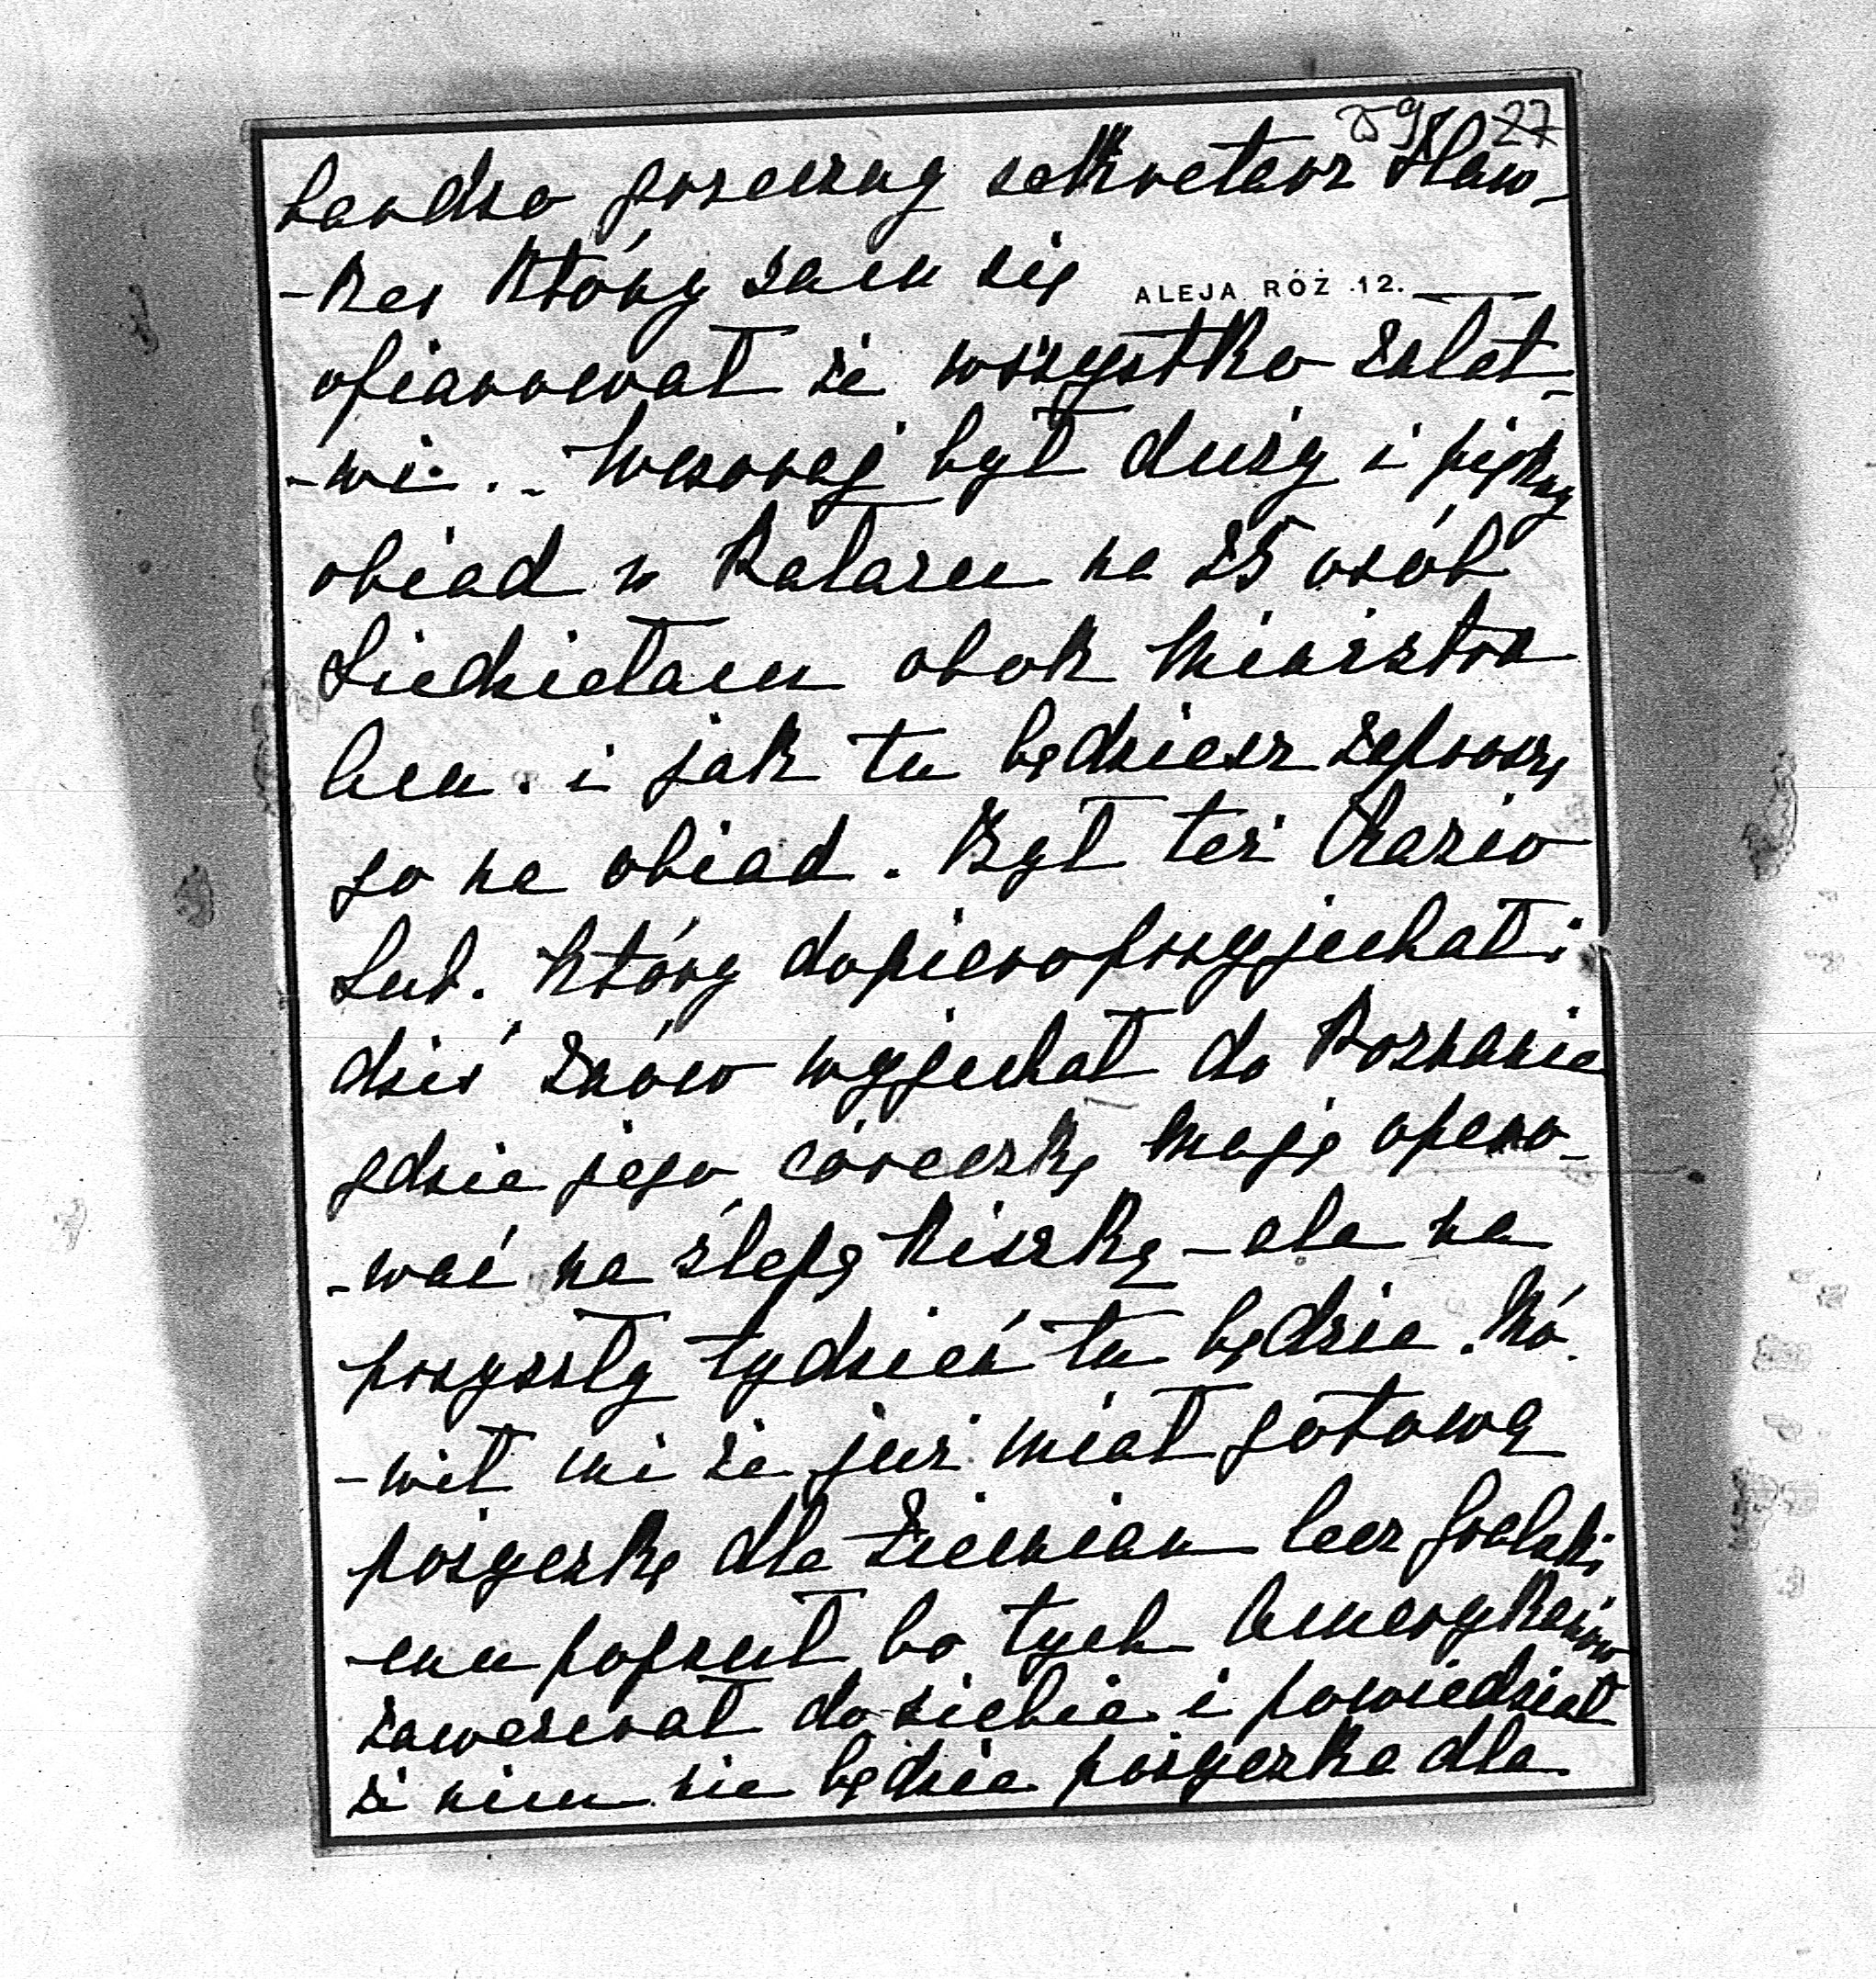 59 27
bardzo grzeczny sekretarz Haw-
-kes który sam się
ALEJA RÓŻ 12.
ofiarował że wszystko załat-
-wi. - Wczoraj był duży i piękny
obiad w Pałacu na 25 osób
Siedziałam obok Ministra
Am. i jak tu będziesz zaproszę
go na obiad. Był też Kazio
Lub. który dopiero przyjechał i
dziś znów wyjechał do Poznania
gdzie jego córeczkę mają opero-
-wać na ślepą kiszkę - ale na
przyszły tydzień tu będzie. Mó-
-wił mi że już miał gotową
pożyczkę dla Ziemian lecz Grabski
-emu popsuł bo tych Amerykanów
zawezwał do siebie i powiedział
że nim nie będzie pożyczka dla